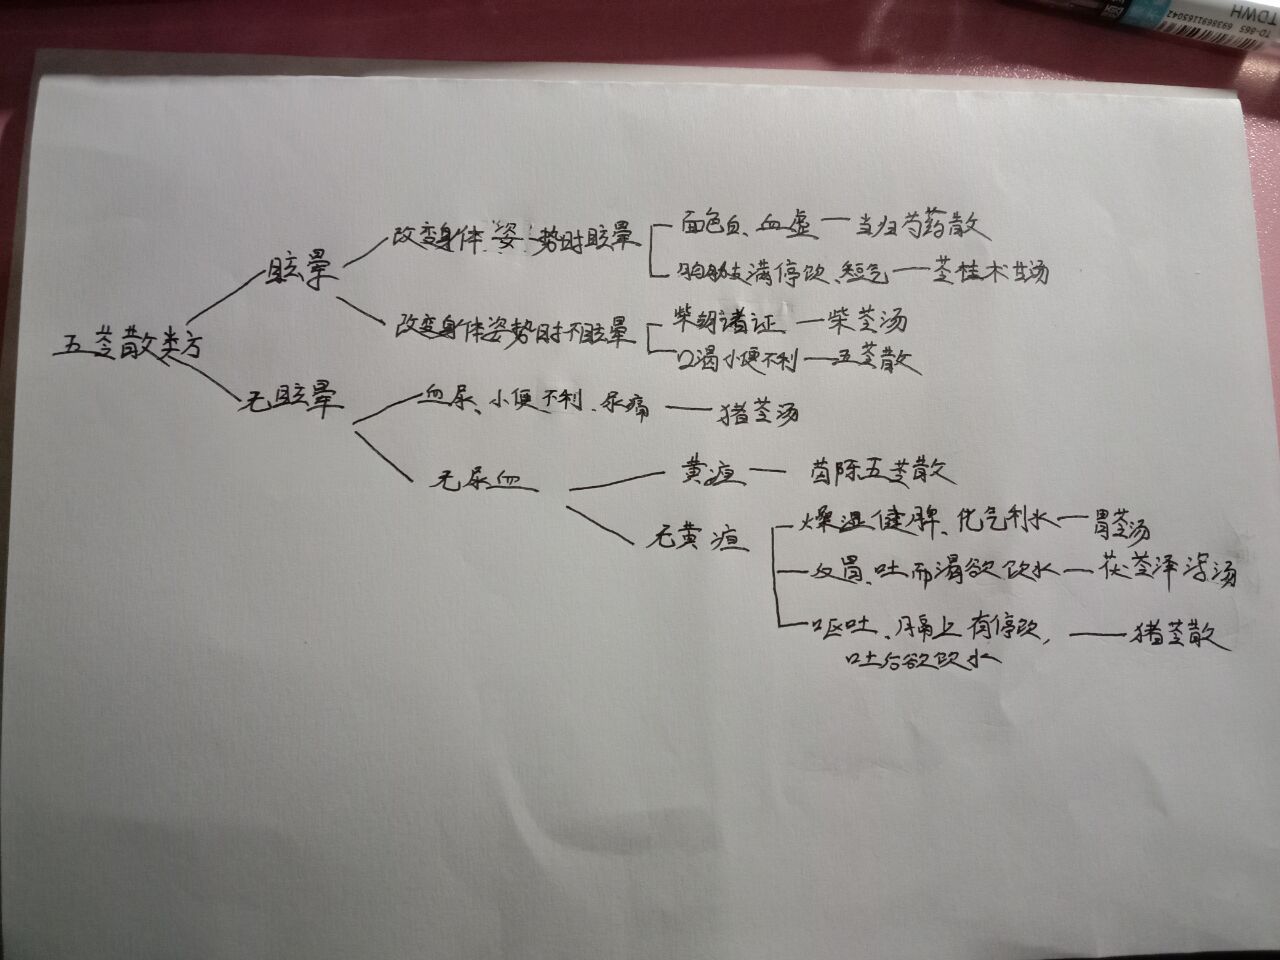 TDWH
TD-865 6938691165042
五苓散类方
眩晕
改变身体姿势时眩晕
面色白、血虚——当归芍药散
胸胁支满停饮、短气——苓桂术甘汤
改变身体姿势时不眩晕
柴胡诸证——柴苓汤
口渴小便不利——五苓散
无眩晕
血尿、小便不利、尿痛——猪苓汤
无尿血
黄疸——茵陈五苓散
无黄疸
燥湿健脾、化气利水——胃苓汤
反胃、吐而渴欲饮水——茯苓泽泻汤
呕吐、膈上有停饮,——猪苓散
吐后欲饮水